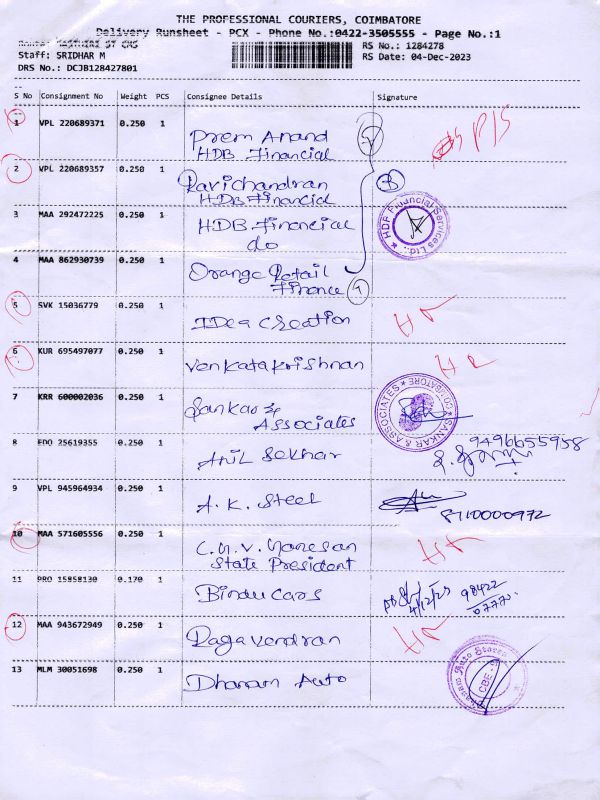 THE PROFESSIONAL COURIERS, COIMBATORE
Delivery Runsheet - PCX - Phone No.:0422-3505555 - Page No.:1
RS No.: 1284278
Staff: SRIDHAR M
RS Date: 04-Dec-2023
DRS No.: DCJB128427801
S No Consignment No Weight PCS Consignee Details Signature
1 VPL 220689371 0.250 1 Prem Anand P/S
HDB Financial
2 VPL 220689357 0.250 1 Ravichandran
HDB Financial
3 MAA 292472225 0.250 1 HDB Financial
do
HDF Financial Services Ltd.,
4 MAA 862930739 0.250 1 Orange Retail
Finance
5 SVK 15036779 0.250 1 Idea Creation
6 KUR 695497077 0.250 1 Venkatakrishnan
7 KRR 600002036 0.250 1 Sankar &
Associates
SANKAR & ASSOCIATES COIMBATORE
8 EDO 25619355 0.250 1 Anil Sekhar 9496655958
9 VPL 945964934 0.250 1 A.K. Steel
8710000972
10 MAA 571605556 0.250 1 Ganesan
State President
11 PRO 15858130 0.170 1 Bindu Cars 4/12/23 98422
12 MAA 943672949 0.250 1 Ragavendran
13 MLM 30051698 0.250 1 Dhanam Auto
Dhanam Auto Stores CBE